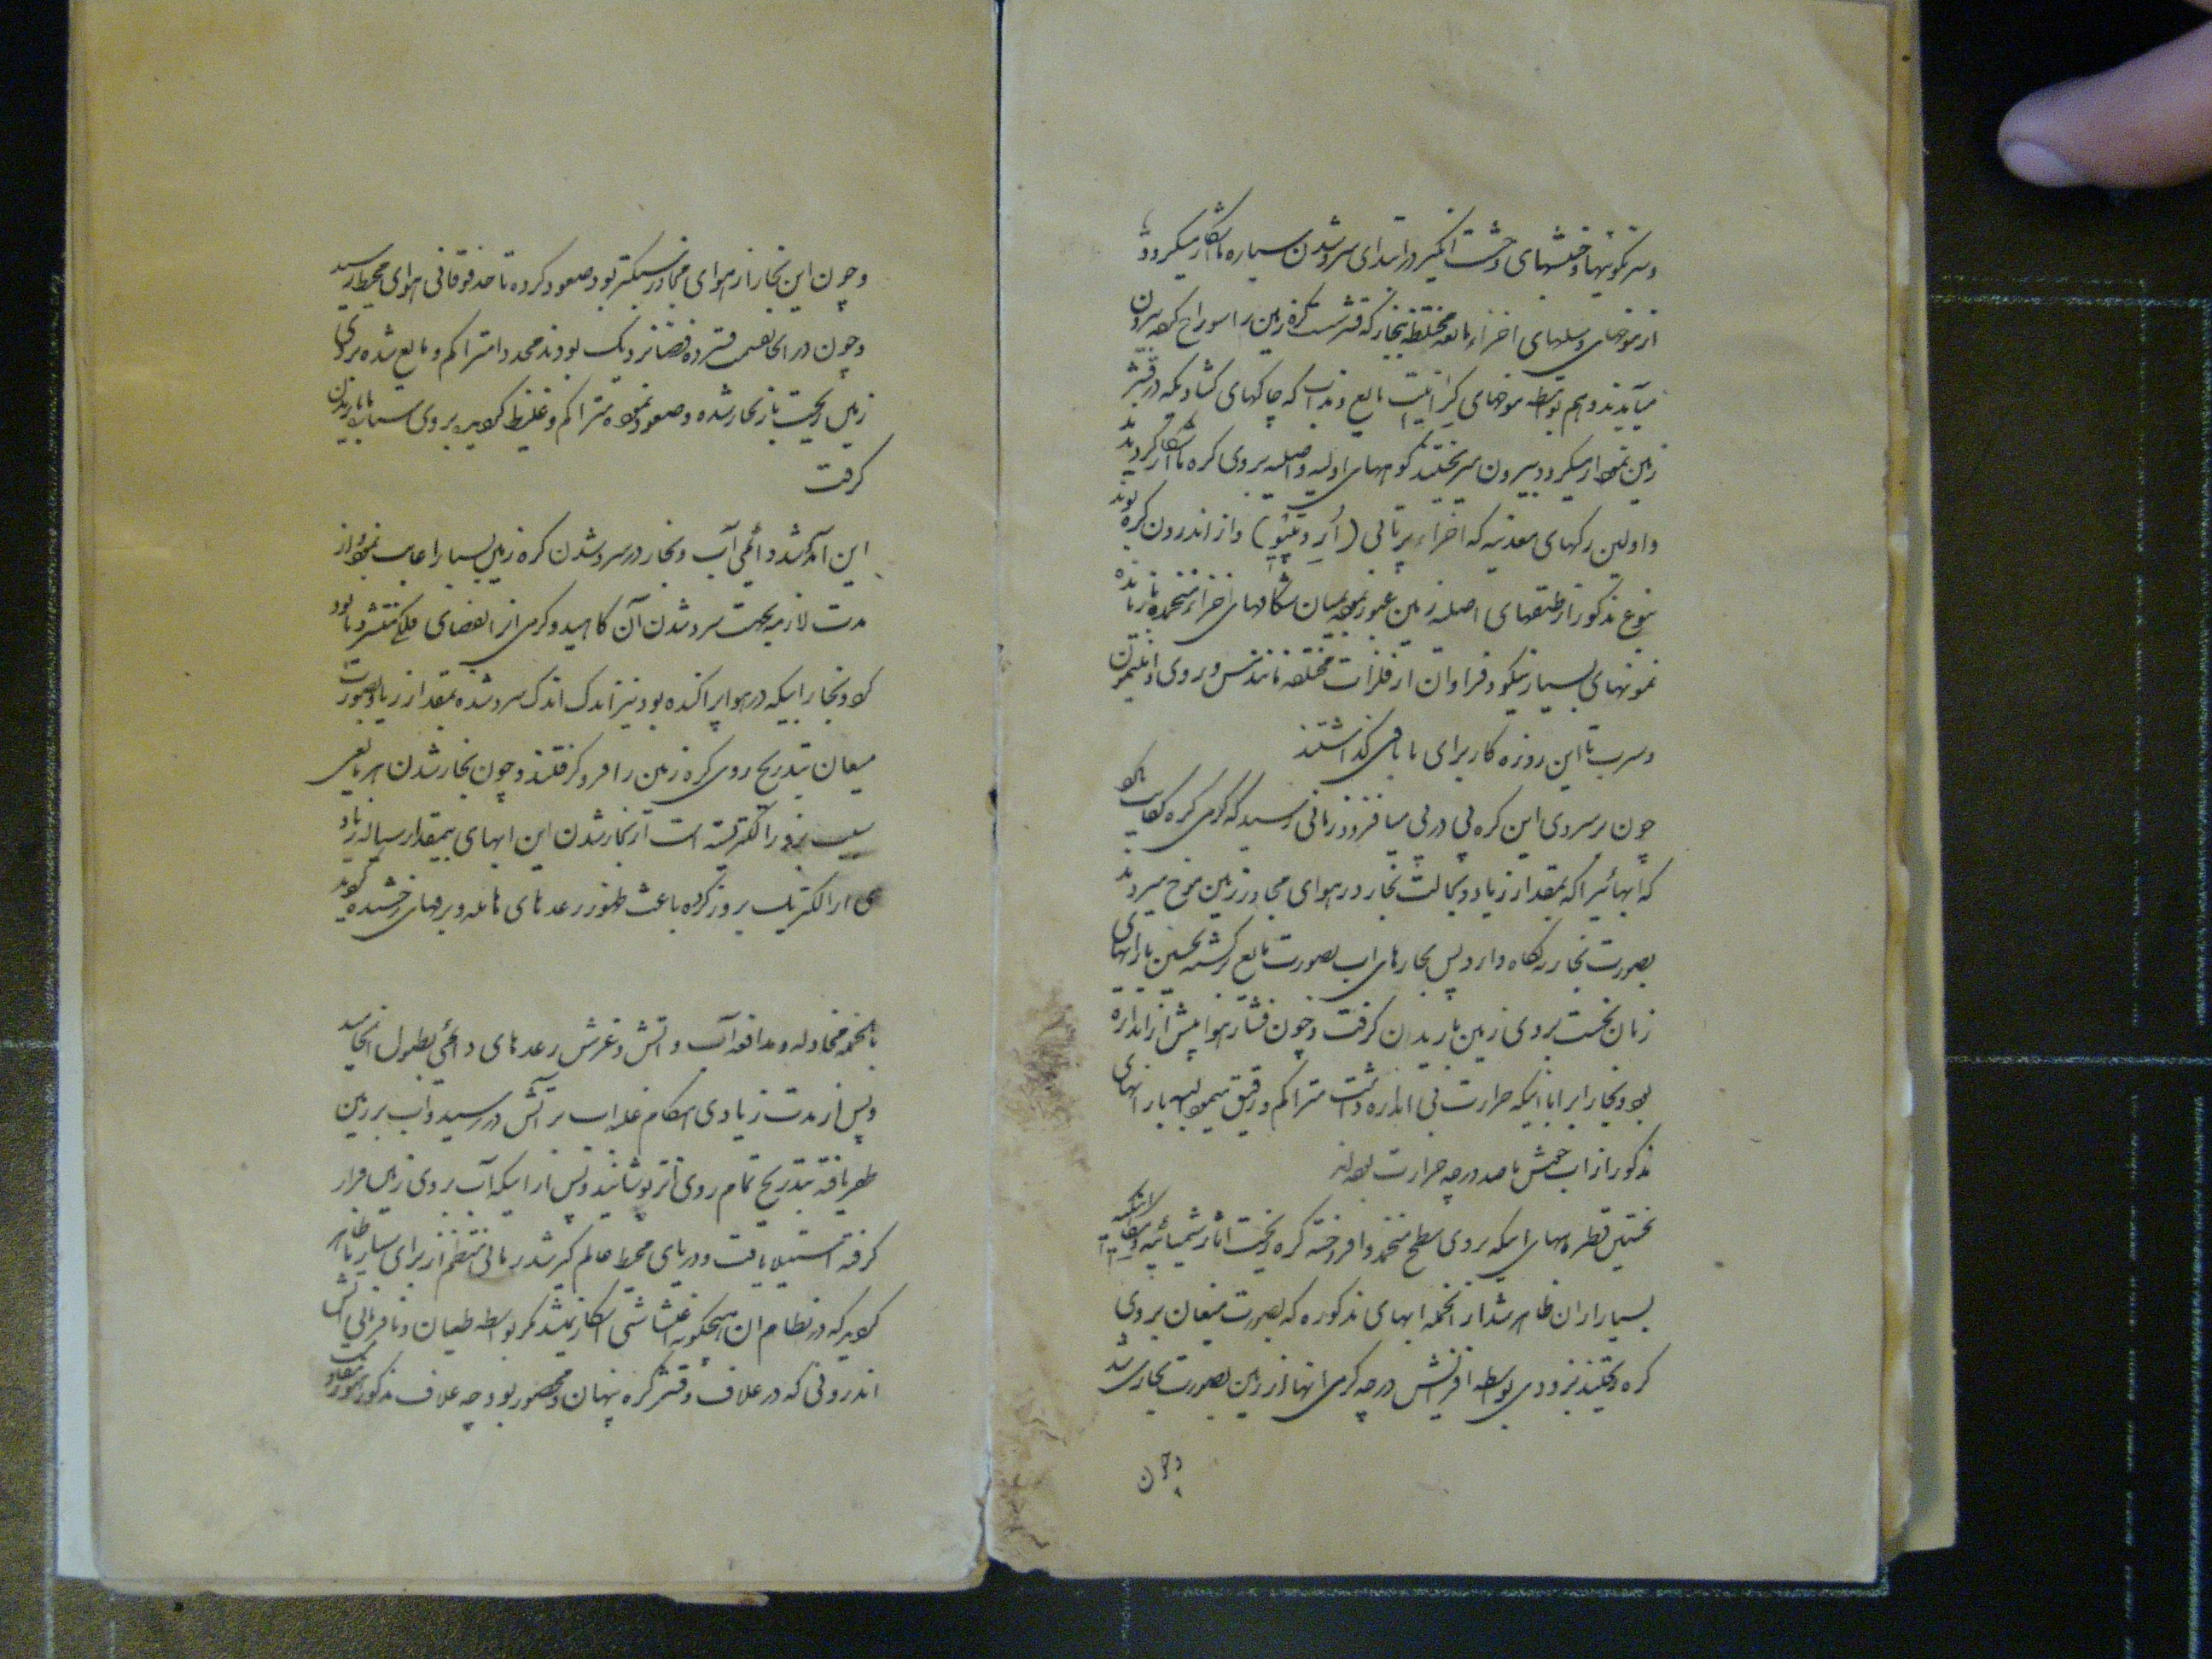 و سرنگونیها و خمشهای وحشت انگیز در ابتدای سرد شدن سیاره ما آشکار میگردد و
از موجهای و سیلهای اجزاء مایعه مختلطه ببخار که قشر سست کره زمین را سوراخ کرده بیرون
میآیند و هم بواسطه موجهای گرانیت مایع و مذاب که چاکهای گشاد که در قشر
زمین نمودار میگردد بیرون میریختند کوههای اولیه و اصلیه بروی کره ما آشکار گردیدند
و اولین رگهای معدنیه که اجزاء پرتابی (اُرِوپتیُو) و از اندرون کره بودند
بنوع مذکور از طبقهای اصلیه زمین عبور نموده بمیان شکافهای اجزاء منجمده بازمانده
نمونهای بسیار نیکو و فراوان از فلزات مختلفه مانند مس و روی و انتیمن
و سرب تا این روزه کار برای ما باقی گذاشتند
چون بر سردی این کره پی در پی میافزود زمانی رسید که گرمی کره کفایت
که آبهائیرا که بمقدار زیاد و بحالت بخار در هوای مجاور زمین موج میزدند
بصورت بخار نگاه دارد پس بخارهای آب بصورت مایع گشته نخستین بارانهای
زمان نخست بروی زمین باریدن گرفت و چون فشار هوا بیش از اندازه
بود و بخار ابر را با اینکه حرارت بی اندازه داشت متراکم و رقیق مینمود لهذا بارانهای
مذکور از آب جوش با صد درجه حرارت بودند
نخستین قطره‌های آبیکه بروی سطح منجمد و افروخته کره ریخت آثار شیمیائیه و
بسیار از ان ظاهر شد از انجمله ابهای مذکوره که بصورت میعان بروی
کره ریختند بزودی بواسطه افزایش درجه گرمی انها از زمین بصورت بخار میشد
و چون
و چون این بخار از هوای مجاور سبکتر بود صعود کرده تا حد فوقانی هوای محیط رسید
و چون در انجا بقسمت فسرده فضا نزدیک بودند مجددا متراکم و مایع شده بروی
زمین ریخت باز بخار شده و صعود نموده متراکم و غلیظ گردیده بروی سیاره ما باریدن
گرفت
این آمد و شد دائمی آب و بخار در سرد شدن کره زمین بسیار اعانت نمود و از
مدت لازمه بجهت سرد شدن آن کاهید و گرمی از آن بفضای فلکی منتشر
کرد و بخار آبیکه در هوا پراکنده بود نیز اندک اندک سرد شده بمقدار زیاد بصورت
میعان بتدریج روی کره زمین را فرو گرفتند و چون بخار شدن هر مایعی
سبب بروز الکتریسته است از بخار شدن این ابهای بیمقدار سیاله زیاد
ی از الکتریک بروز کرده باعث ظهور رعدهای هایله و برقهای درخشیده گردید
بالجمله مجادله و مدافعه آب و آتش و غرش رعدهای دائمی بطول انجامید
و پس از مدت زیادی هنگام غلبه اب بر آتش در رسید و اب بر زمین
ظفر یافته بتدریج تمام روی آنرا پوشانید و پس از اینکه آب بروی زمین قرار
گرفته استیلا یافت و دریای محیط عالم گیر شد زمانی منتظم از برای سیاره ما ظاهر
گردید که در نظام ان هیچگونه اغتشاشی آشکار نمیشد مگر بواسطه طغیان و نافرمانی آتش
اندرونی که در غلاف و قشر کره پنهان و محصور بود چه غلاف مذکور هنوز